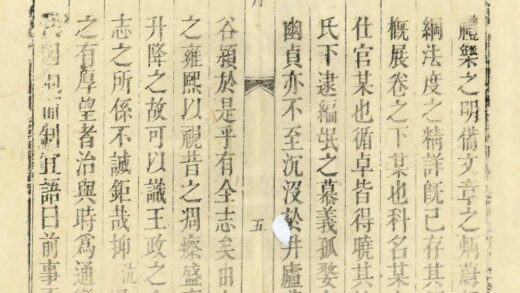 禮樂之明備文章之炳蔚
綱法度之精詳既已存其
概展卷之下某也科名某
仕官某也循卓皆得曉其
氏下逮編氓之慕義孤嫠
幽貞亦不至沉沒於井廬
五
谷潁於是乎有全志矣由
之雍熙以視昔之凋瘵盛
升降之故可以識王政之
志之所係不誠鉅哉抑
之有厚望者治與時爲通
制宜語曰前事